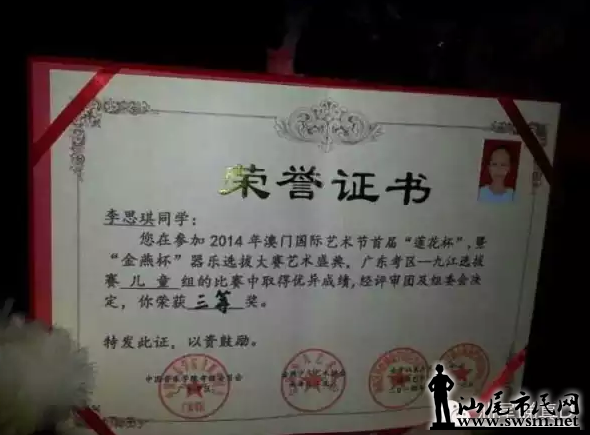 荣誉证书
李思琪同学：
您在参加2014年澳门国际艺术节首届“莲花杯”，暨
“金燕杯”器乐选拔大赛艺术盛典，广东考区—九江选拔
赛 儿童 组的比赛中取得优异成绩，经评审团及组委会决
定，你荣获 三等 奖。
特发此证，以资鼓励。
汕尾市民网
www.swsm.net